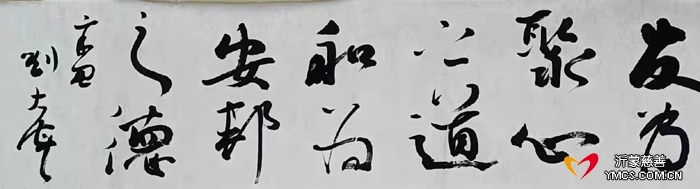 为
聚心
之道
和为
安邦
之德
刘大
沂蒙慈善
YMCS.COM.CN